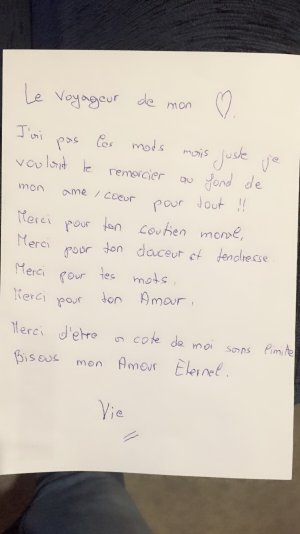 Le Voyageur de mon ♡.
J'ai pas les mots mais juste je
voulait te remercier au fond de
mon ame/coeur pour tout !!
Merci pour ton soutien moral,
Merci pour ton douceur et tendresse.
Merci pour tes mots.
Merci pour ton Amour.
Merci d'être a cote de moi sans limite
Bisous mon Amour Èternel.
Vie